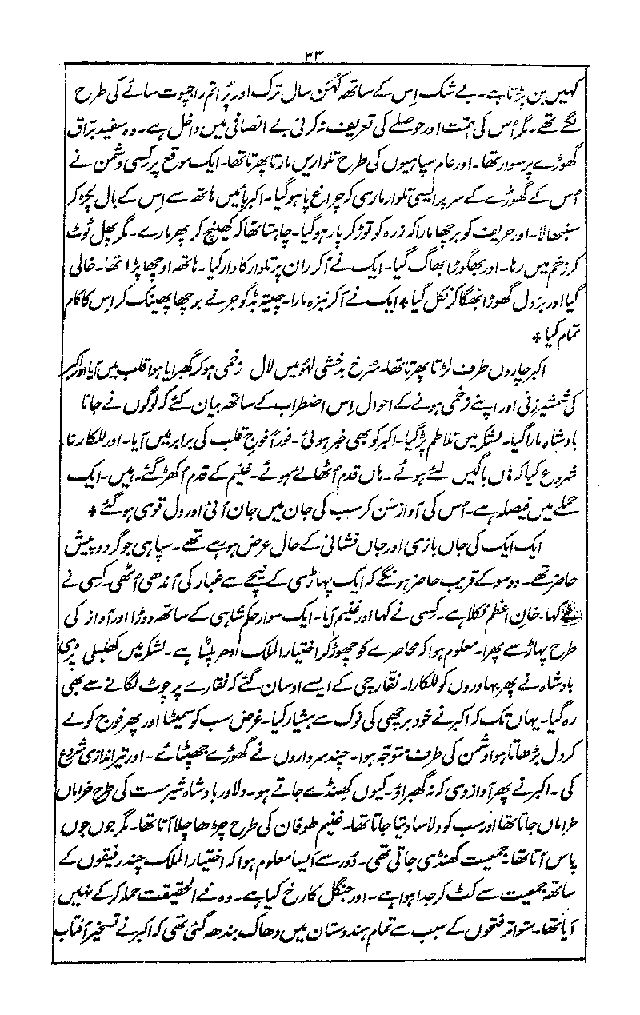 ۳۳
کہیں بن پڑتا ہے۔ بے شک اس کے ساتھ کہن سال ترک اور پراتم راجپوت سائے کی طرح
لگے تھے۔ مگر اُس کی ہمت اور حوصلے کی تعریف نہ کرنی بے انصافی میں داخل ہے۔ وہ سفید براق
گھوڑے پر سوار تھا۔ اور عام سپاہیوں کی طرح تلواریں مارتا پھرتا تھا۔ ایک موقع پر کسی دشمن نے
اُس کے گھوڑے کے سر پر ایسی تلوار ماری کہ چراغ پا ہو گیا۔ اکبر بائیں ہاتھ سے اس کے بال پکڑ کر
سنبھالا۔ اور حریف کو برچھا مارا کہ زرہ کو توڑ کر پار ہو گیا۔ چاہتا تھا کہ کھینچ کر پھر مارے۔ مگر پھل ٹوٹ
کر زخم میں رہا۔ اور بھگوڑا بھاگ گیا۔ ایک نے آکر ران پر تلوار کا وار کیا۔ ہاتھ اوچھا پڑا تھا۔ خالی
گیا اور بزدل گھوڑا بھگا کر نکل گیا * ایک نے آکر نیزہ مارا۔ چیتہ بڈگوجر نے برچھا پھینک کر اس کا کام
تمام کیا *
اکبر چاروں طرف لڑتا پھرتا تھا۔ سرخ بدخشی لہو میں لال زخمی ہو کر گھبرایا ہوا قلب میں آیا اور اکبر
کی شمشیر زنی اور اپنے زخمی ہونے کے احوال اس اضطراب کے ساتھ بیان کئے کہ لوگوں نے جانا
بادشاہ مارا گیا۔ لشکر میں تلاطم پڑ گیا۔ اکبر کو بھی خبر ہوئی۔ فوراً فوج قلب کی برابر میں آیا۔ اور للکارنا
شروع کیا کہ ہاں باگیں لئے ہوئے۔ ہاں قدم اُٹھائے ہوئے۔ غنیم کے قدم اُکھڑ گئے ہیں۔ ایک
حملے میں فیصلہ ہے۔ اُس کی آواز سن کر سب کی جان میں جان آئی اور دل قوی ہو گئے *
ایک ایک کی جاں بازی اور جاں فشانی کے حال عرض ہو رہے تھے۔ سپاہی جو گرد و پیش
حاضر تھے۔ دو سو کے قریب حاضر ہونگے کہ ایک پہاڑی کے نیچے سے غبار کی آندھی اُٹھی۔ کسی نے
کہا۔ خان اعظم نکلا ہے۔ کسی نے کہا اور غنیم آیا۔ ایک سوار حکم شاہی کے ساتھ دوڑا اور آواز کی
طرح پہاڑ سے پھرا۔ معلوم ہوا کہ محاصرے کو چھوڑ کر اختیار الملک ادھر پلٹا ہے۔ لشکر میں کھلبلی پڑی
بادشاہ نے پھر بہادروں کو للکارا۔ نقارچی کے ایسے اوسان گئے کہ نقارے پر چوٹ لگانے سے بھی
رہ گیا۔ یہاں تک کہ اکبر نے خود برچھی کی نوک سے ہشیار کیا۔ غرض سب کو سمیٹا اور پھر فوج کو لے
کر دل بڑھاتا ہوا دشمن کی طرف متوجہ ہوا۔ چند سرداروں نے گھوڑے جھپٹائے۔ اور تیر اندازی شروع
کی۔ اکبر نے پھر آواز دی کہ نہ گھبراؤ۔ کیوں کھنڈے جاتے ہو۔ دلاور بادشاہ شیر مست کی طرح خراماں
خراماں جاتا تھا اور سب کو دلاسا دیتا جاتا تھا۔ غنیم طوفان کی طرح چڑھا چلا آتا تھا۔ مگر جوں جوں
پاس آتا تھا۔ جمعیت کھنڈی جاتی تھی۔ دُور سے ایسا معلوم ہوا کہ اختیار الملک چند رفیقوں کے
ساتھ جمعیت سے کٹ کر جدا ہوا ہے۔ اور جنگل کا رخ کیا ہے۔ وہ فی الحقیقت حملہ کرنے نہیں
آیا تھا۔ متواتر فتحوں کے سبب سے تمام ہندوستان میں دھاک بندھ گئی تھی کہ اکبر نے تسخیر آفتاب